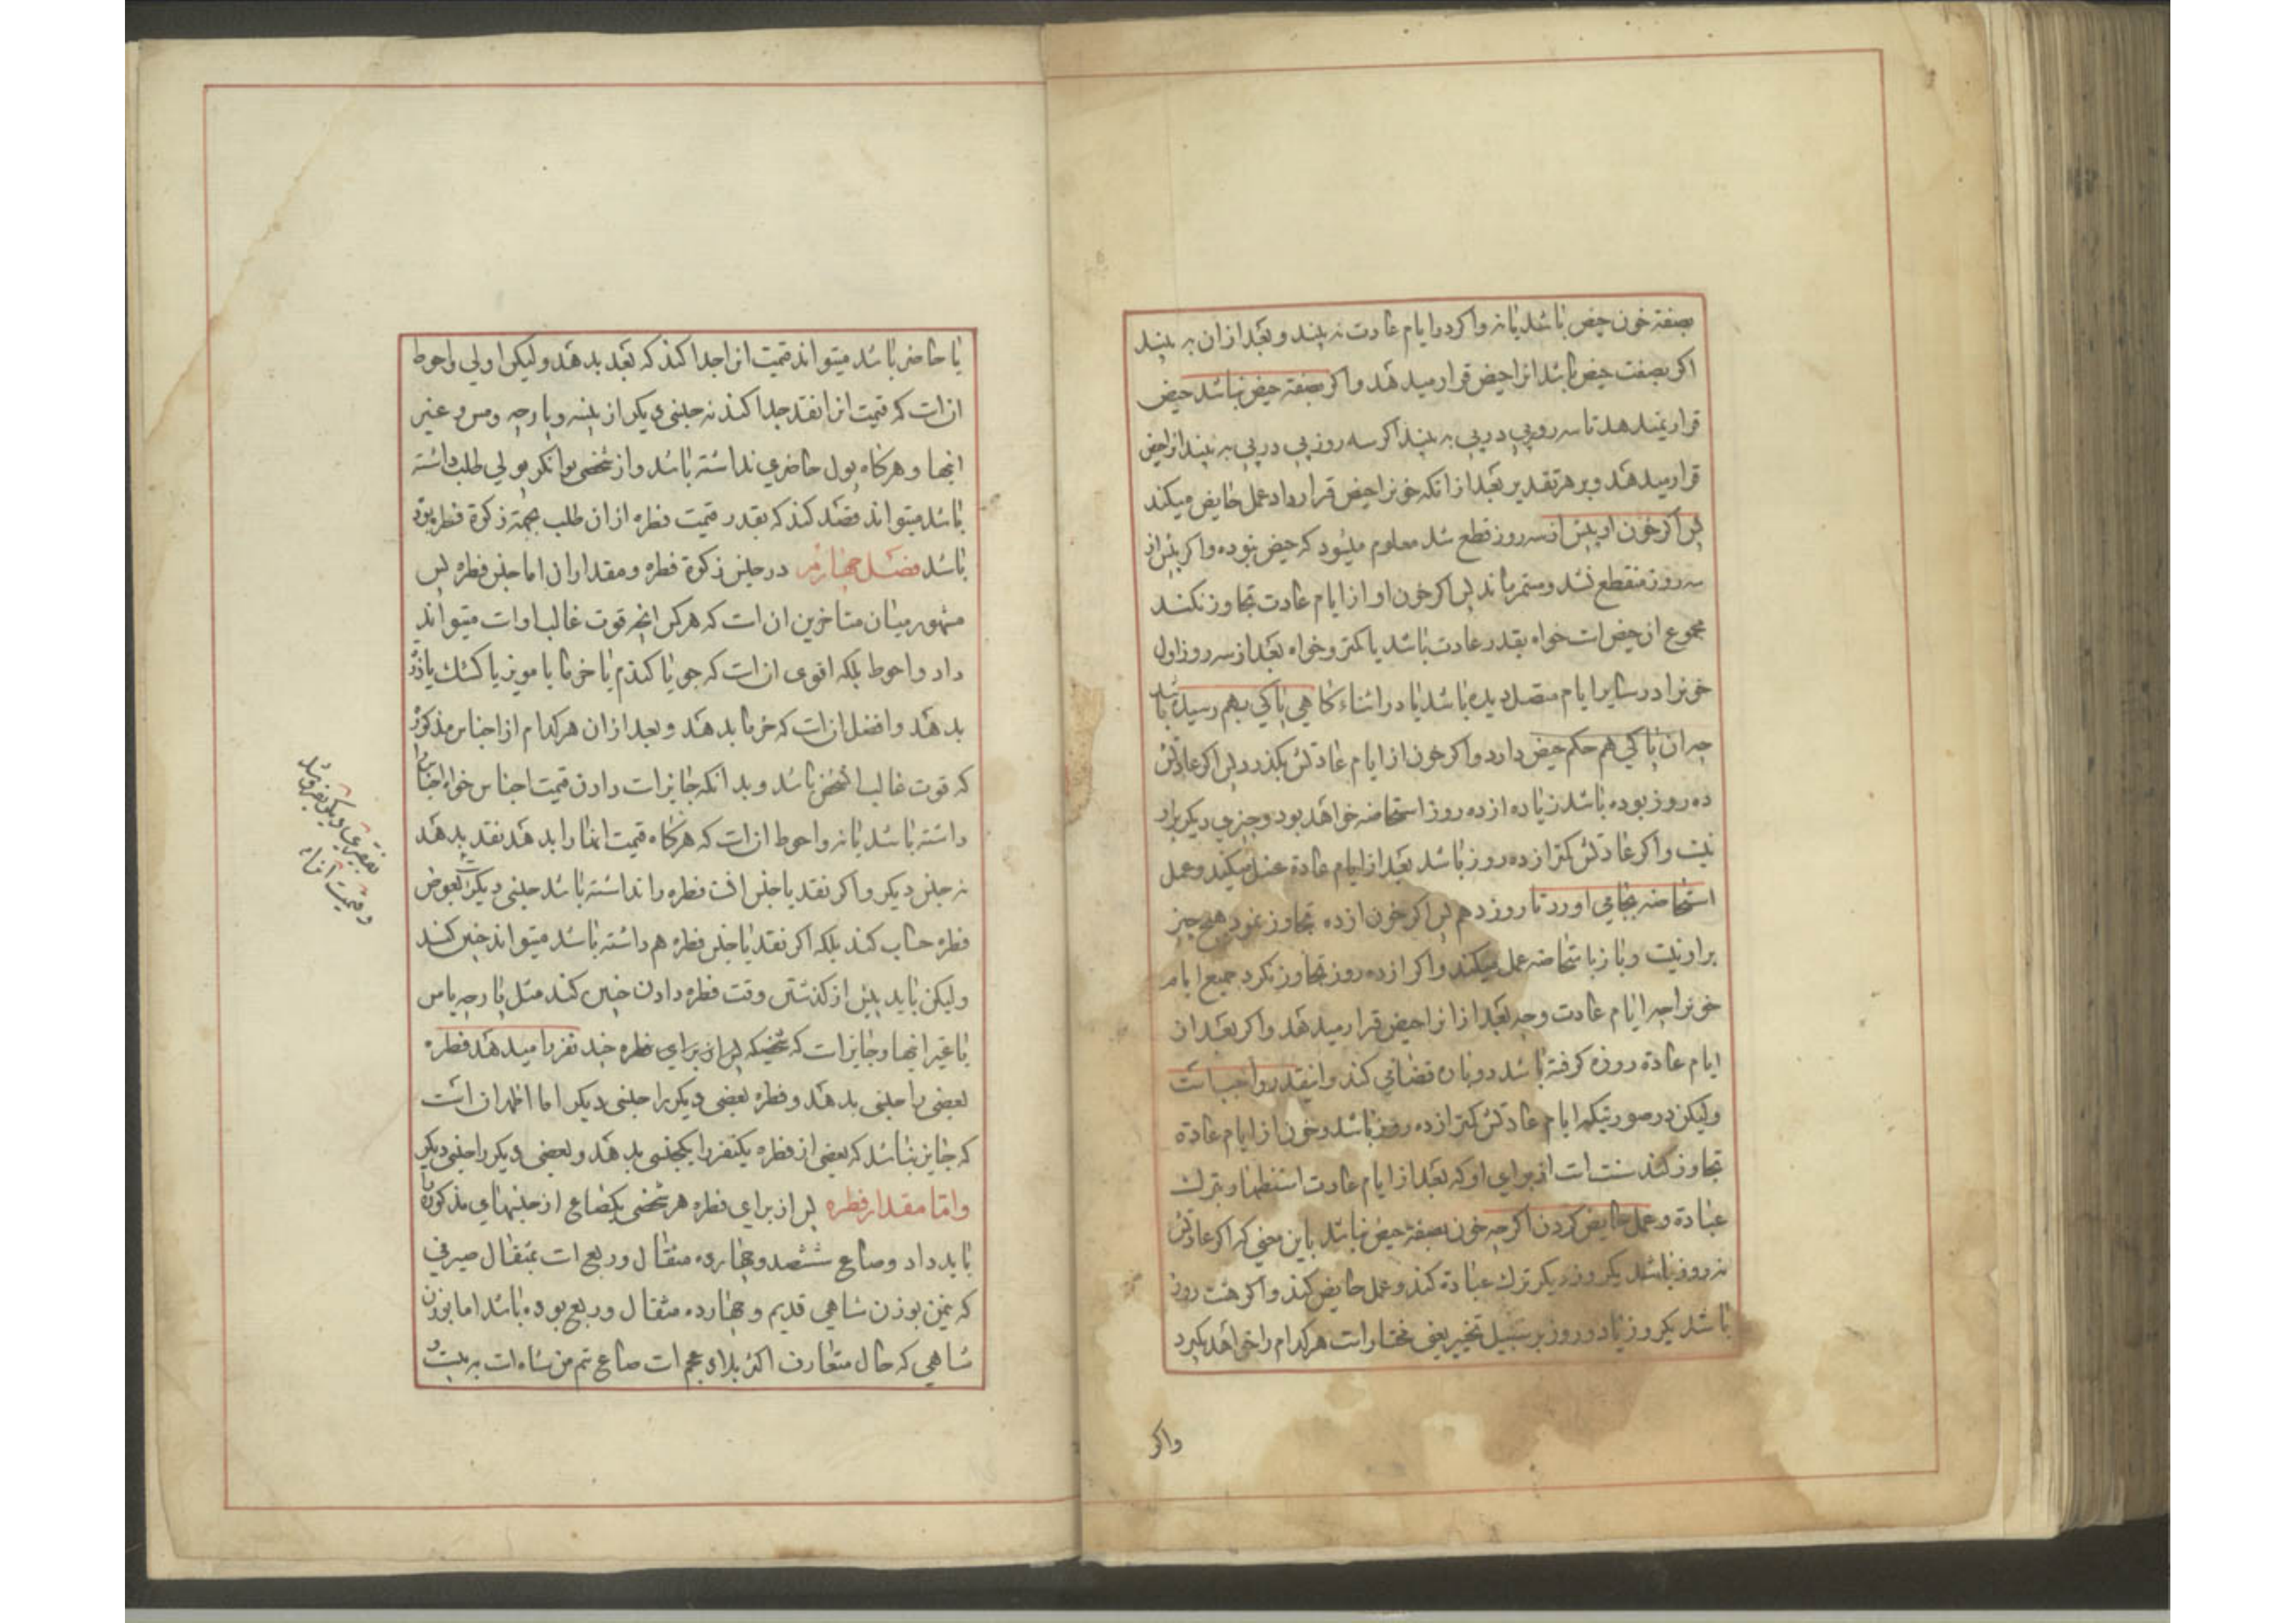 بصفة خون حیض باشد یا نه واکر در ایام عادت نه بیند و بعد از ان به بیند
اکر بصفت حیض باشد انرا حیض قرار میدهد واکر بصفة حیض نباشد حیض
قرار نمیدهد تا سه روز پی در پی به بیند اکر سه روز پی در پی به بیند انرا حیض
قرار میدهد و بر هر تقدیر بعد از انکه خونرا حیض قرار داد عمل حایض میکند
پس اکر خون او پیش از سه روز قطع شد معلوم میشود که حیض نبوده واکر پیش از
سه روز منقطع نشد و مستمر ماند پس اکر خون او از ایام عادت تجاوز نکند
مجموع ان حیض است خواه بقدر عادت باشد یا کمتر و خواه بعد از سه روز اول
خونرا در سایر ایام متصل دیده باشد یا در اثناء کاهی پاکی بهم رسیده باشد
چه ان پاکی هم حکم حیض دارد واکر خون از ایام عادتش بکذرد پس اکر عادتش
ده روز بوده باشد زیاده از ده روز استحاضه خواهد بود و چیزی دیکر براو
نیست واکر عادتش کمتر از ده روز باشد بعد از ایام عادة غسل میکند و عمل
استحاضه بجامی اورد تا روز دهم پس اکر خون از ده تجاوز نمود هیچ چیز
براو نیست و باز باستحاضه عمل میکند واکر از ده روز تجاوز نکرد جمیع ایام
خونرا چه ایام عادت و چه بعد از انرا حیض قرار میدهد واکر بعد از ان
ایام عادة روزه کرفته باشد دوباره قضا می کند و اینقدر واجبست
ولیکن در صورتیکه ایام عادتش کمتر از ده روز باشد و خون از ایام عادة
تجاوز کند سنت است از برای او که بعد از ایام عادت استظهار بترك
عبادة و عمل حایض کردن اکرچه خون بصفة حیض نباشد باین معنی که اکر عادتش
نه روز باشد یکروز دیکر ترك عبادة کند و عمل حایض کند واکر هشت روز
باشد یکروز یا دو روز بر سبیل تخییر یعنی مختار است هر کدام را خواهد بکیرد
واکر
یا حاضر باشد میتواند قیمت انرا جدا کند که بعد بدهد ولیکن اولی و احوط
ان است که قیمت انرا نقد جدا کند نه جنسی دیکر از پنبه و پارچه و مس و غیر
اینها و هرکاه پول حاضری نداشته باشد و از شخصی توانکر پولی طلب داشته
باشد میتواند قصد کند که بقدر قیمت فطره از ان طلب بجهة زکوة فطره بوده
باشد فصل چهارم در جنس زکوة فطره و مقدار ان اما جنس فطره پس
مشهور میان متاخرین ان است که هرکس انچه قوت غالب اوست میتواند
داد و احوط بلکه اقوی ان است که جو یا کندم یا خرما یا مویز یا کشك یا ذرة
بدهد و افضل ان است که خرما بدهد و بعد از ان هر کدام از اجناس مذکوره
که قوت غالب انشخص باشد و بدانکه جایز است دادن قیمت اجناس خواه اجناس را
داشته باشد یا نه و احوط ان است که هرکاه قیمت انها را بدهد نقد بدهد
نه جنس دیکر و اکر نقد یا جنس افت فطره را نداشته باشد جنسی دیکر را بعوض
فطره حساب کند بلکه اکر نقد یا جنس فطره هم داشته باشد میتواند چنین کند
ولیکن باید پیش از کذشتن وقت فطره دادن چنین کند مثل پارچه یا مس
یا غیر اینها و جایز است که شخصیکه پس از برای فطره چند نفر را میدهد فطره
بعضی را جنسی بدهد و فطره بعضی دیکر را جنسی دیکر اما اظهر ان است
که جایز نباشد که بعضی از فطره یکنفر را بیکجنسی بدهد و بعضی دیکر را جنسی دیکر
و اما مقدار فطره پس از برای فطره هر شخصی یکصاع از جنسهای مذکوره را
باید داد و صاع ششصد و چهارده مثقال و ربع است بمثقال صیرفی
که نیمن بوزن شاهی قدیم و چهارده مثقال و ربع بوده باشد اما بوزن
شاهی که حال متعارف اکثر بلاد عجم است صاع نیم من شاه است به بیست و